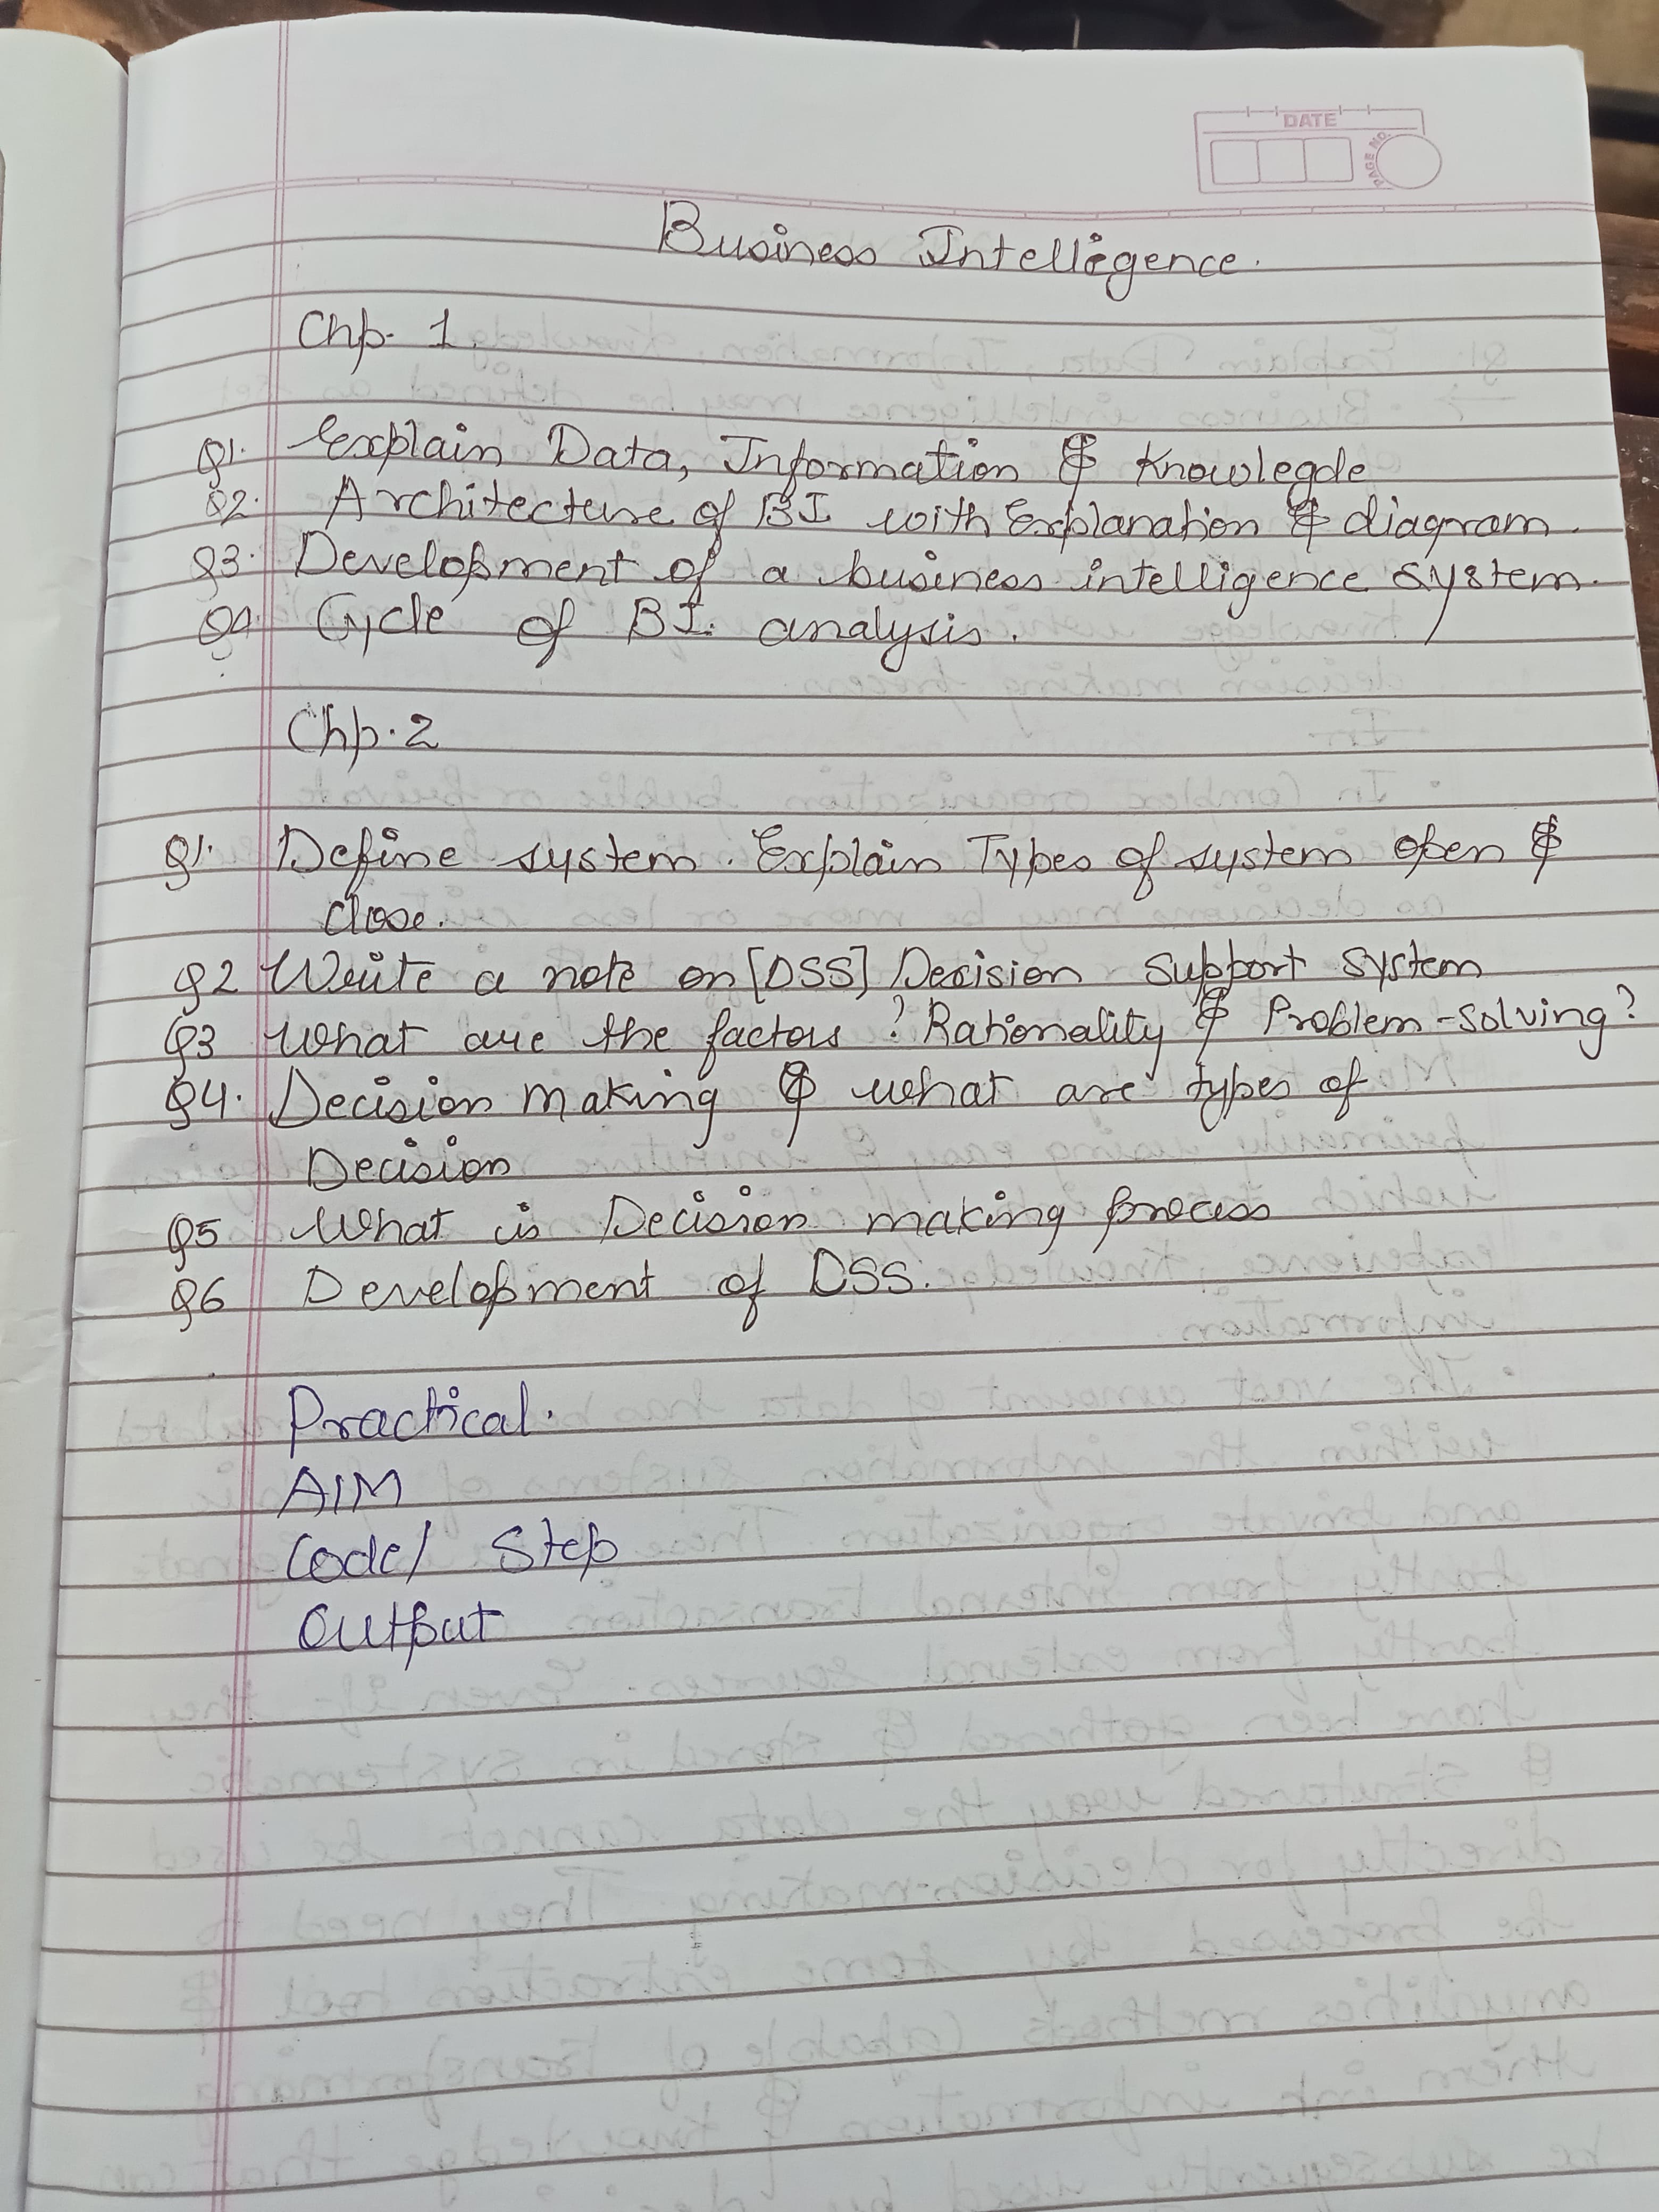 DATE
PAGE NO.
Business Intelligence.
Chp. 1.
Q1. Explain Data, Information & Knowlegde
Q2. Architecture of BI with Explanation & diagram.
Q3. Development of a business intelligence system.
Q4. Cycle of BI. analysis.
Chp. 2
Q1. Define system. Explain Types of system open &
close.
Q2 Write a note on [DSS] Decision Support System
Q3 What are the factors ? Rationality & Problem-solving?
Q4. Decision making & what are types of
Decision
Q5 What is Decision making process
Q6 Development of DSS.
Practical.
AIM
Code/ Step
Output